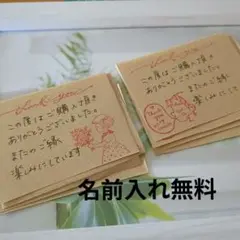 thank you
この度はご購入頂き
ありがとうございました。
またのご縁
楽しみにしています
この度はご購入頂き
ありがとうございました。
またのご縁
楽しみにしています
名前入れ無料